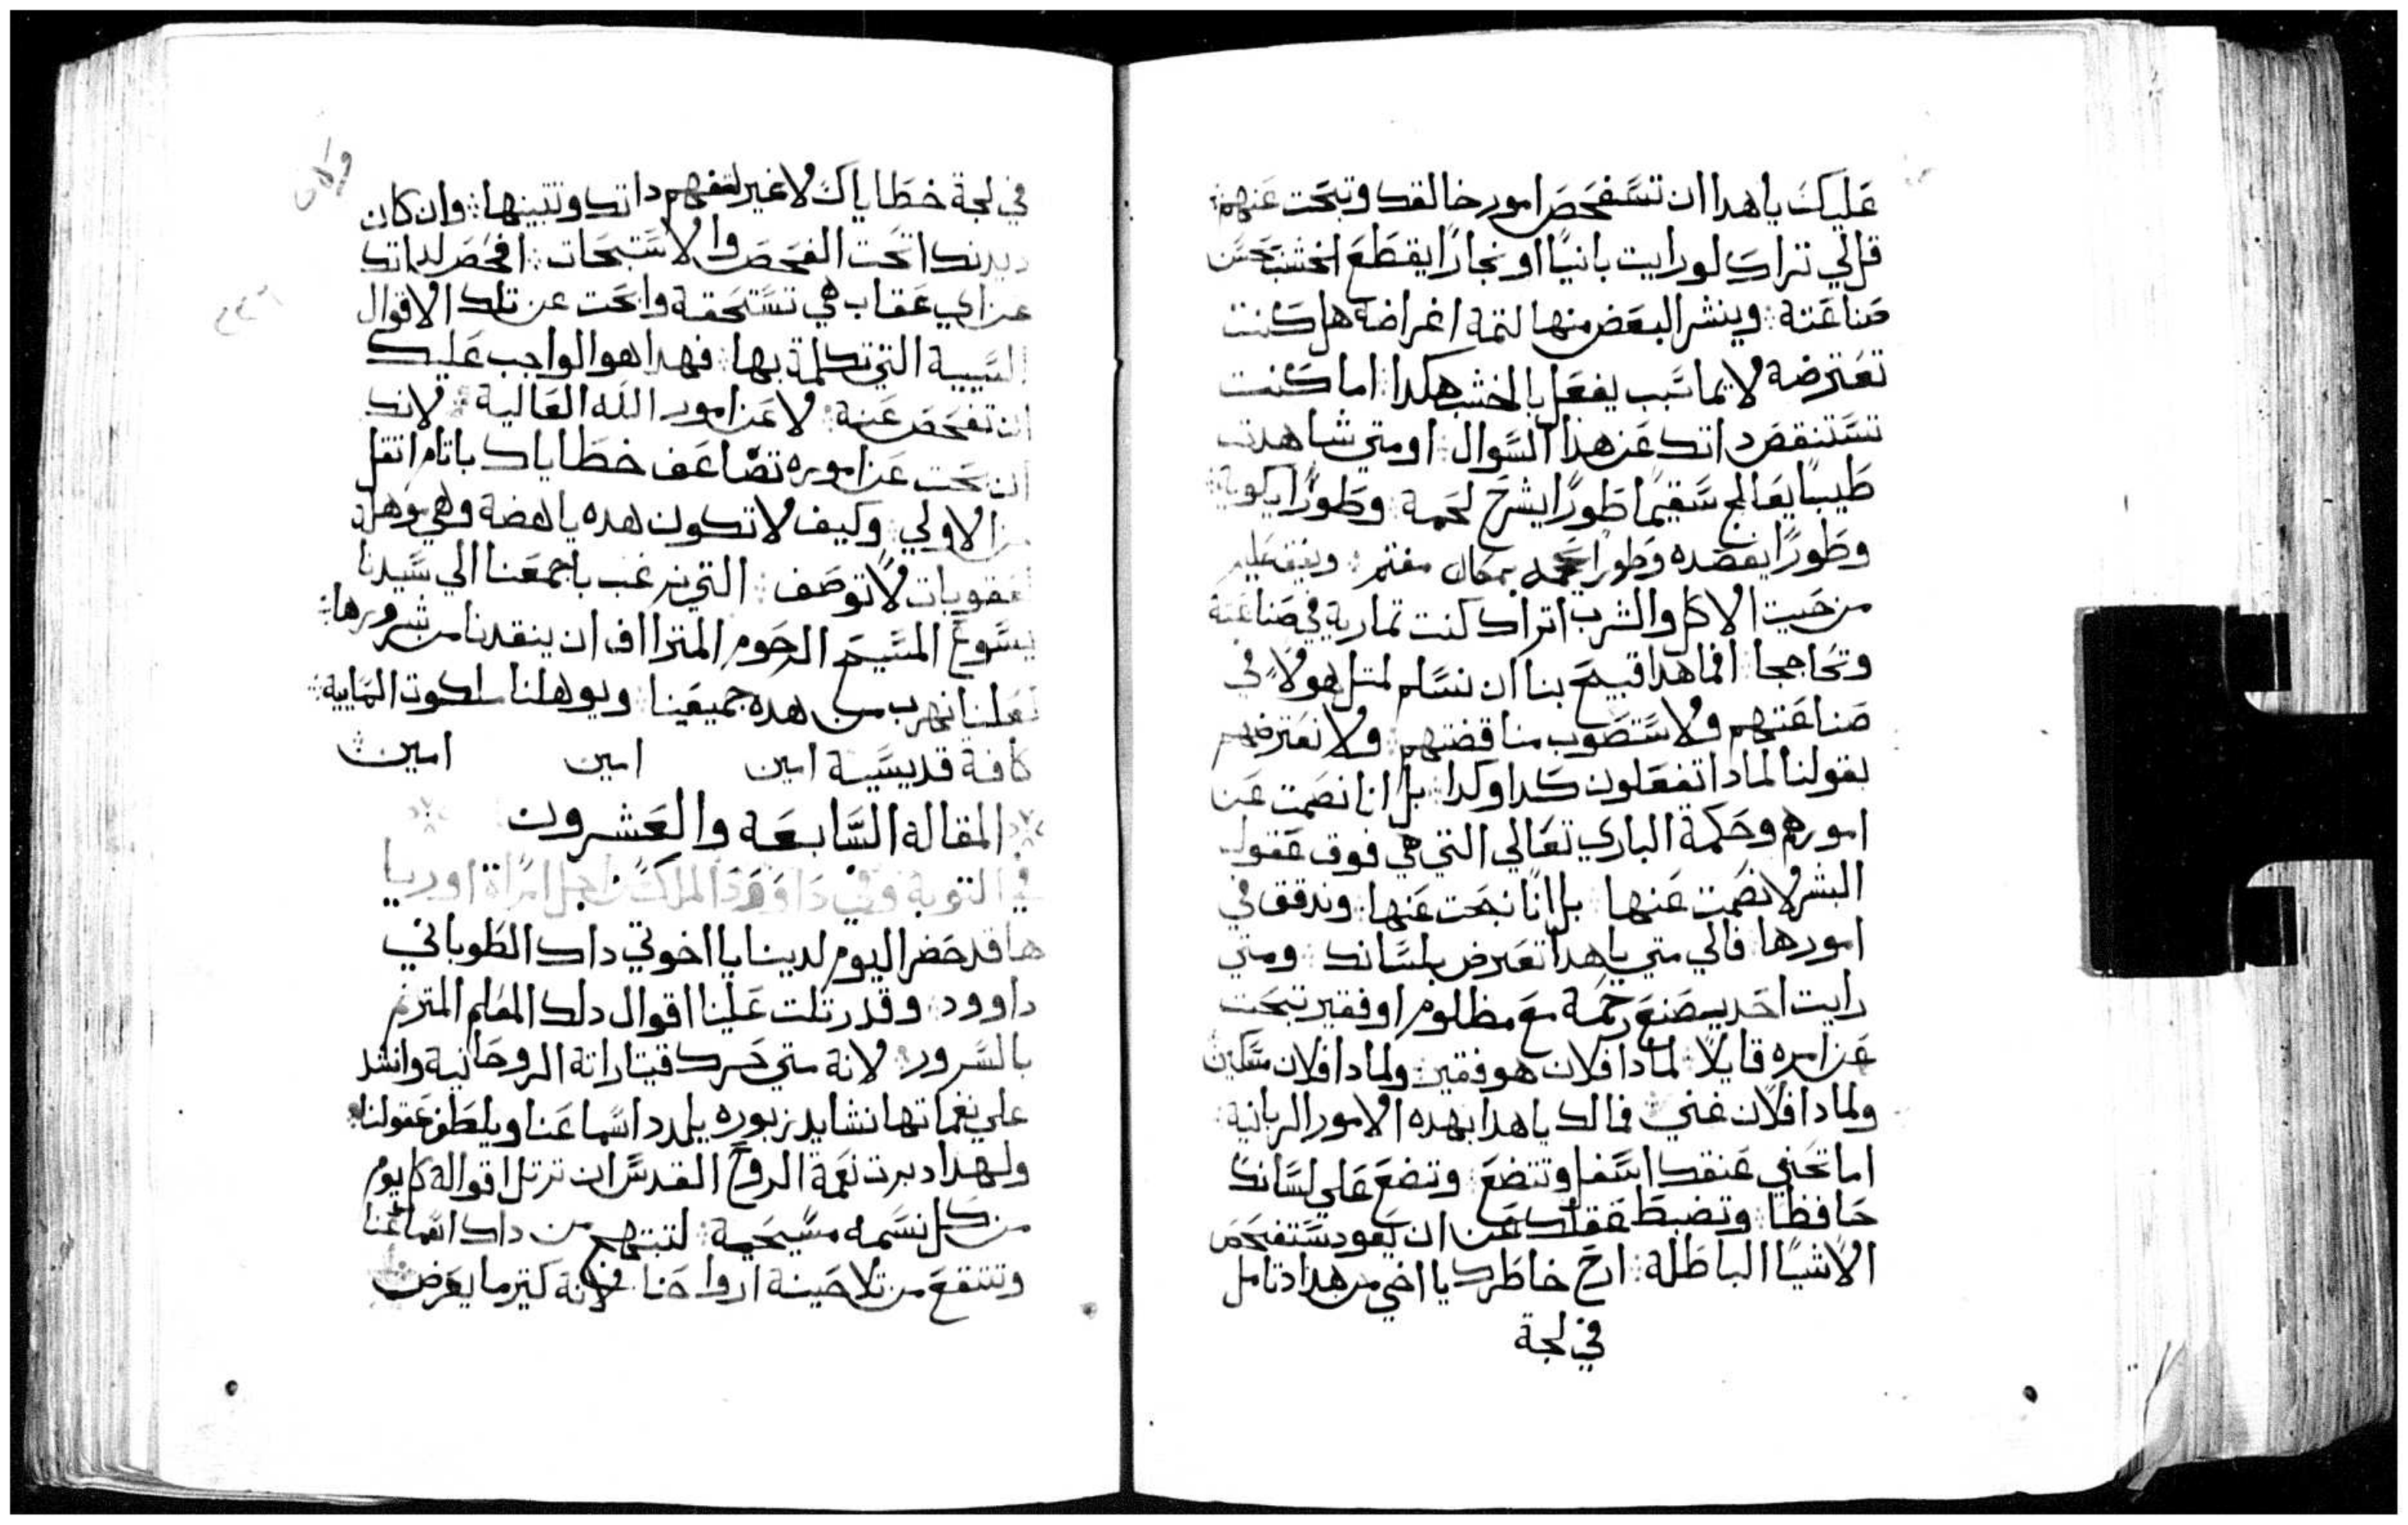 عليك ياهدا ان تستفحص امور خالقك وتبحت عنهم
قل لي تراك لو رايت بانيًا او نجارًا يقطع الخشب بحسن
صناعته وينشر البعض منها لتمة اغراضه هل كنت
تعترضه لايما سبب يفعل بالخشب هكدا اما كنت
تستنقص داتك عن هذا السوال او متي شاهدت
طبيبًا يعالج سقيمًا طورًا يشرح لحمة وطورًا يكوية
وطورًا يفصده وطورًا بمكان مغتم
من حيت الاكل والشرب اتراك كنت تماريه في صناعتة
وتحاججا افما هدا قبيح بنا ان نسلم لمتل هولاءِ في
صناعتهم ولا نستصوب مناقضتهم ولا نعترضهم
بقولنا لمادا تفعلون كدا وكدا بل انا نصمت عن
امورهم وحكمة الباري تعالي التي هي فوق عقول
البشر لا نصمت عنها بل انا نبحت عنها وندقق في
امورها فالي متي ياهدا تعترض بلسانك ومتي
رايت احد يصنع رحمة مع مظلوم او فقير تبحت
عن امره قايلًا لمادا فلان هو فقير ولمادا فلان مسكين
ولمادا فلان غني فمالك ياهدا بهده الامور الربانية
اما تحني عنقك اسفل وتتضع وتضع علي لسانك
حافظًا وتضبط عقلك عن ان يعود يستفحص
الاشيا الباطلة ارح خاطرك يا اخي من هدا وتامل
في لجة
في لجة خطاياك لا غير لتفهم داتك وتتبينها وان كان
ديدنك اتحت الفحص والاستبحات افحص لداتك
عن اي عقاب هي تستحقة وابحت عن تلك الاقوال
السيية التي تكلمة بها فهدا هو الواجب عليك
ان تفحص عنة لا عن امور الله العالية لانك
ان بحت عن اموره تضاعف خطاياك باتام اتقل
من الاولي وكيف لا تكون هده باهضة وهي موهلة
لعقوبات لا توصف التي نرغب باجمعنا الي سيدنا
يسوع المسيح الرحوم المتراف ان ينقدنا من شرورها
لعلنا نهرب من هده جميعنا ويوهلنا ملكوت السمايية
كافة قديسية امين امين امين
المقالة السابعه والعشرون
في التوبة وفي داوود الملك من اجل امراة اوريا
ها قد حضر اليوم لدينا يا اخوتي داك الطوباني
داوود وقد رتلت علينا اقوال دلك المعلم المترنم
بالسرور لانة متي حرك قيتاراتة الروحانية وانشد
علي نغماتها نشايد زبوره يلدد اسماعنا ويلطف عقولنا
ولهدا دبرت نعمة الروح القدس ان ترتل اقوالة كل يوم
من كل نسمه مسيحية لتبتهج من داك اسماعنا
وتنتفع من تلاحينة ارواحنا لانة كتير ما يعرض